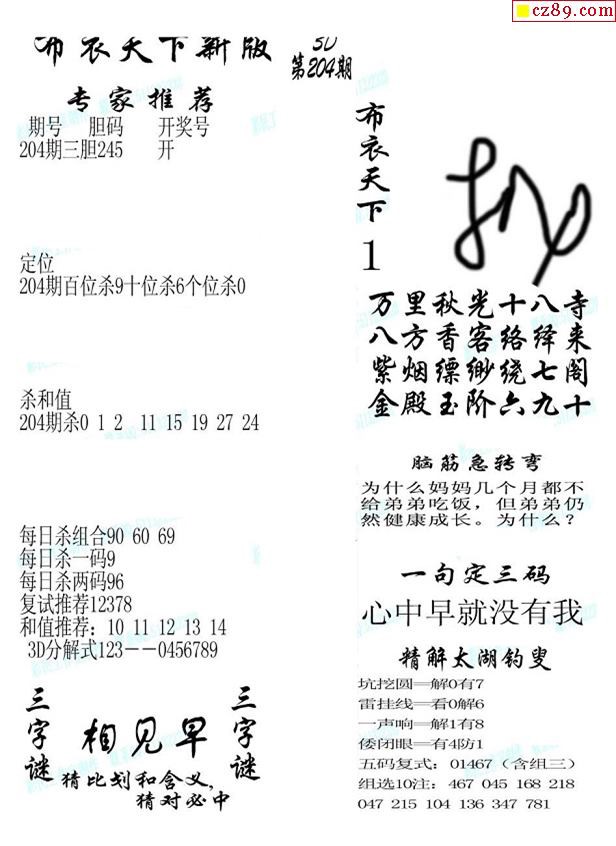 cz89.com
布衣天下新版
3D
第204期
专家推荐
期号 胆码 开奖号
204期三胆245 开
定位
204期百位杀9十位杀6个位杀0
杀和值
204期杀0 1 2 11 15 19 27 24
每日杀组合90 60 69
每日杀一码9
每日杀两码96
复试推荐12378
和值推荐：10 11 12 13 14
3D分解式123——0456789
三字谜
相见早
三字谜
猜比划和含义，
猜对必中
布衣天下
1
万里秋光十八寺
八方香客络绎来
紫烟缥缈绕七阁
金殿玉阶六九十
脑筋急转弯
为什么妈妈几个月都不
给弟弟吃饭，但弟弟仍
然健康成长。为什么？
一句定三码
心中早就没有我
精解太湖钓叟
坑挖圆══解0有7
雷挂线══看0解6
一声响══解1有8
倭闭眼══有4防1
五码复式：01467（含组三）
组选10注：467 045 168 218
047 215 104 136 347 781